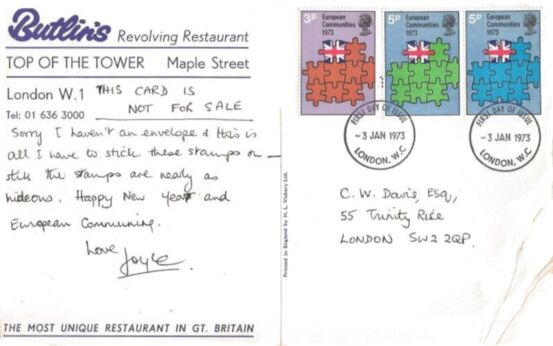 Butlin's Revolving Restaurant
TOP OF THE TOWER Maple Street
London W.1 THIS CARD IS
NOT FOR SALE
Tel: 01 636 3000
Sorry I haven't an envelope & this is
all I have to stick these stamps on —
still the stamps are nearly as
hideous. Happy New Year and
European Communing.
Love Joyce
THE MOST UNIQUE RESTAURANT IN GT. BRITAIN
Printed in England by H. L. Vickery Ltd.
3p European Communities 1973
5p European Communities 1973
5p European Communities 1973
FIRST DAY OF ISSUE
-3 JAN 1973
LONDON, W.C
FIRST DAY OF ISSUE
-3 JAN 1973
LONDON, W.C
C. W. Davis, Esq,,
55 Trinity Rise
LONDON SW2 2QP.